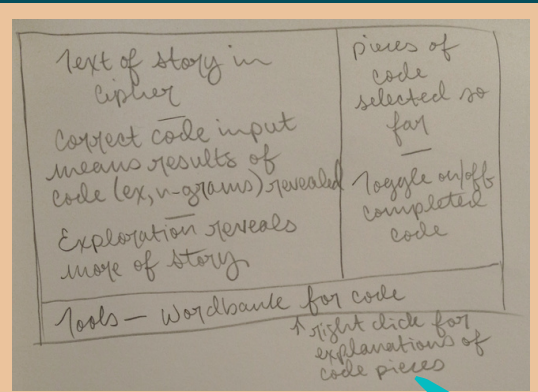 Text of story in
cipher
Correct code input
means results of
code (ex, n-grams) revealed
Exploration reveals
more of story
pieces of
code
selected so
far
Toggle on/off
completed
code
Tools — Wordbank for code
↑ right click for
explanations of
code pieces